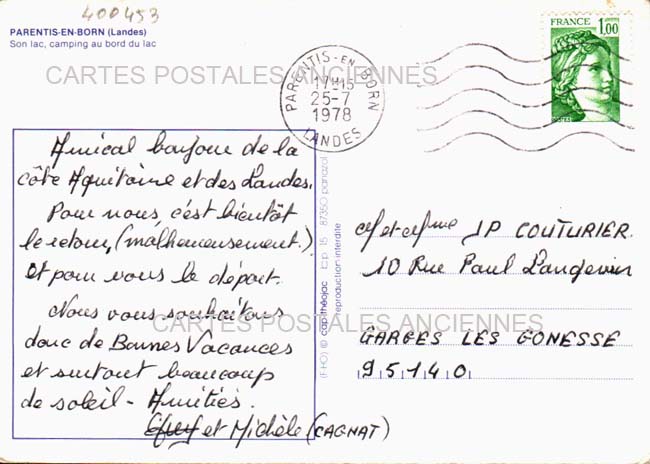 400453
PARENTIS-EN-BORN (Landes)
Son lac, camping au bord du lac
CARTES POSTALES ANCIENNES
PARENTIS-EN-BORN
17H15
25-7
1978
LANDES
FRANCE
1,00
Amical bonjour de la
côte Aquitaine et des Landes.
Pour nous, c'est bientôt
le retour, (malheureusement.)
Et pour vous le départ.
Nous vous souhaitons
donc de Bonnes Vacances
et surtout beaucoup
de soleil - Amitiés.
et Michèle (CAGNAT)
(FHO) © cap-théojac b.p. 15 87350 panazol
reproduction interdite
Mr et Mme JP COUTURIER
10 Rue Paul Langevin
CARTES POSTALES ANCIENNES
GARGES LES GONESSE
95140